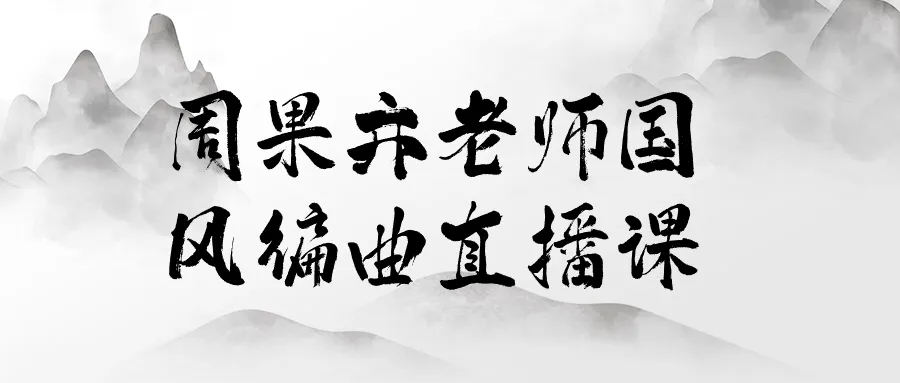 周果卞老师国
风编曲直播课